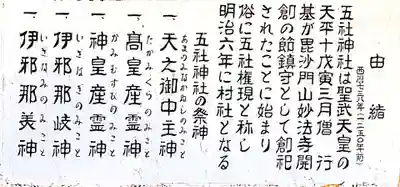 由緒
西暦七三八年(一二五〇年前)
五社神社は聖武天皇の
天平十戊寅三月僧 行
基が毘沙門山妙法寺開
創の節鎮守として創祀
されたことに始まり
俗に五社権現と称し
明治六年に村社となる
五社神社の祭神
あまのみなかぬしのみこと
一 天之御中主神
たかみくらのみこと
一 髙皇産霊神
かみむすびのみこと
一 神皇産霊神
いざなぎのみこと
一 伊邪那岐神
いざなみのみこと
一 伊邪那美神